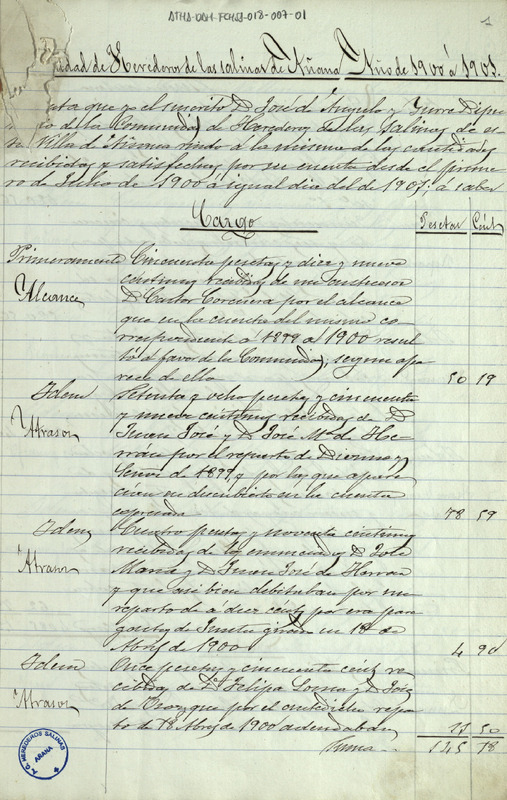 ATHA-DAH-FCHSJ-018-007-01
1
Comunidad de Herederos de las salinas de Añana Año de 1900 á 1901.
que yo el suscrito D. José de Angulo y Yurre Dipu
de la Comunidad de Herederos de las Salinas de es
Villa de Añana rindo á la misma de las cantidades
recibidas y satisfechas por su cuenta desde el prime
ro de Julio de 1900 á igual dia del de 1901, á saber
Cargo
Pesetas Cént
Primeramente Cincuenta pesetas y diez y nueve
centimos recibidos de mi antecesor
Alcance D. Castor Corcuera por el alcance
que en la cuenta del mismo co-
rrespondiente á 1899 á 1900 resul
tó á favor de la Comunidad, segun apa
rece de ella 50 19
Idem Setenta y ocho pesetas y cincuenta
y nueve centimos recibidos de D.
Atrasos Juan José y D. José Mª de He-
rran por el reparto de Diezmos y
de 1899 y por los que apare
cian en descubierto en la cuenta
expresada 78 59
Idem Cuatro pesetas y noventa centimos
recibidos de los enunciados D. José
Atrasos Maria y D. Juan José de Herran
y que asi bien debitaban por un
reparto de a diez cénts por era para
gastos de Junta girado en 18 de
Abril de 1900 4 90
Idem Once pesetas y cincuenta cénts re
cibidos de Dª Felipa y D. José
Atrasos de que por el antedicho repar
to de 18 Abril de 1900 adeudaban 11 50
Suma 145 18
A.G. HEREDEROS SALINAS
AÑANA